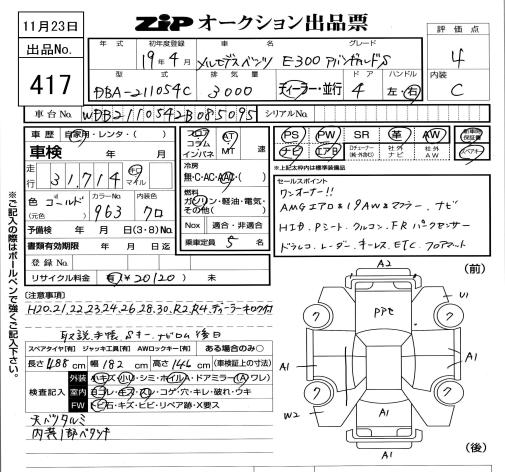 11月23日
ZIP オークション出品票
評価点
4
出品No.
417
年式 初年度登録 車名 グレード
19年4月 メルセデスベンツ E300 アバンギャルドS
型式 排気量 ドア ハンドル
DBA-211054C 3000 ディーラー・並行 4 左・右
内装
C
車台No. WDB2110542B085095 シリアルNo.
車歴 自家用・レンタ・( )
車検 年 月
走行 31,714 キロ マイル
色 ゴールド カラーNo 963 内装色 クロ
(元色)
予備検 年 月 日(3・8)No.
書類有効期限 年 月 日迄
登録No.
リサイクル料金 有(¥20120) 未
フロア コラム インパネ
AT・MT 速
冷房
無・C・AC・AAC・( )
燃料
ガソリン・軽油・電気・その他( )
Nox 適合・非適合
乗車定員 5 名
PS PW SR 革 AW
ナビ エアB 社外ナビ 社外AW
*上記太枠内は標準装備品
セールスポイント
ワンオーナー!!
AMGエアロ&19AWマフラー、ナビ
HID、Pシート、クルコン、FRパークセンサー
ドラレコ、レーダー、キーレス、ETC、フロアマット
※ご記入の際はボールペンで強くご記入下さい。
[注意事項]
H20.21.22.23.24.26.28.30.R2.R4.ディーラーキロク付
取説、手帳、Sキー、ナビロム後日
スペアタイヤ[有] ジャッキ工具[有] AWロックキー[有] ある場合のみ○
長さ 488 cm 幅 182 cm 高さ 146 cm (車検証上の寸法)
検査記入
外装 小キズ・小凹・シミ・ホイルA・ドアミラー(A・ワレ)
室内 ヨゴレ・キズ・スリ・コゲ・穴・キレ・破れ・ウキ
FW トビ石・キズ・ヒビ・リペア跡・X要ス
天バリタルミ
内装1部ベタツキ
(前)
A2
U1
ワ ワ
PPセ
A1 A1
ワ ワ
W2
A1
(後)